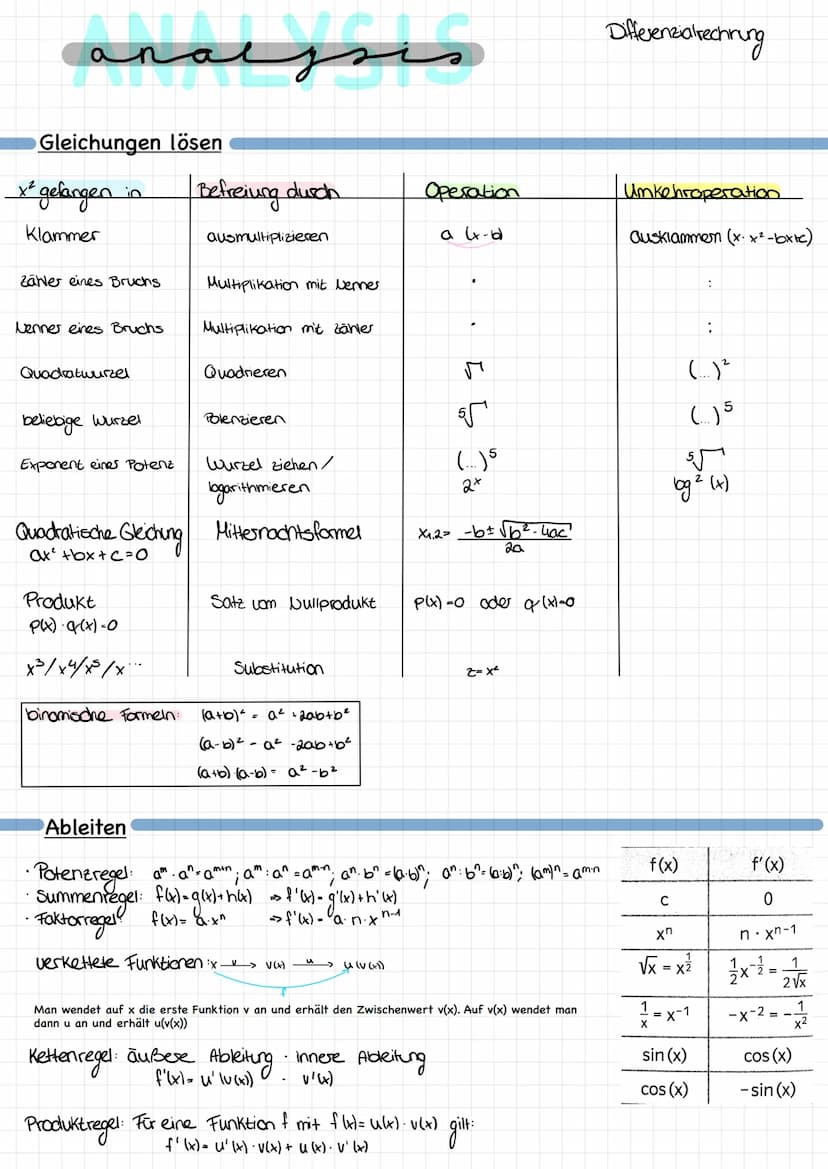 ANALYSIS
analysis
Differenzialrechnung
Gleichungen lösen
x² gefangen in | Befreiung durch | Operation | Umkehroperation
Klammer | ausmultiplizieren | a (x-b) | ausklammern (x· x²-bx+c)
Zähler eines Bruchs | Multiplikation mit Nenner | · | :
Nenner eines Bruchs | Multiplikation mit Zähler | · | :
Quadratwurzel | Quadrieren | √ | (...)²
beliebige Wurzel | Potenzieren | ⁵√ | (...)⁵
Exponent einer Potenz | Wurzel ziehen/ | (...)⁵ | ⁵√
logarithmieren | 2ˣ | log² (x)
Quadratische Gleichung | Mitternachtsformel | x₁,₂= (-b±√(b²-4ac))/2a
ax² +bx+c=0
Produkt | Satz vom Nullprodukt | p(x)=0 oder q(x)=0
p(x)·q(x)=0
x³/x⁴/x⁵/x˙˙˙ | Substitution | z=x²
binomische Formeln: (a+b)² = a² +2ab+b²
(a-b)² = a² -2ab+b²
(a+b)·(a-b)= a²-b²
Ableiten
· Potenzregel: aᵐ·aⁿ=aᵐ⁺ⁿ; aᵐ:aⁿ=aᵐ⁻ⁿ; aⁿ·bⁿ=(a·b)ⁿ; aⁿ:bⁿ=(a:b)ⁿ; (aᵐ)ⁿ=aᵐ·ⁿ
· Summenregel: f(x)=g(x)+h(x) ⇒ f'(x)=g'(x)+h'(x)
· Faktorregel: f(x)= a·xⁿ ⇒ f'(x)= a·n·xⁿ⁻¹
verkettete Funktionen: x —v→ v(x) —u→ u(v(x))
Man wendet auf x die erste Funktion v an und erhält den Zwischenwert v(x). Auf v(x) wendet man
dann u an und erhält u(v(x))
Kettenregel: äußere Ableitung · innere Ableitung
f'(x)= u'(v(x)) · v'(x)
Produktregel: Für eine Funktion f mit f(x)= u(x)·v(x) gilt:
f'(x)= u'(x)·v(x)+ u(x)·v'(x)
f(x) | f′(x)
c | 0
xⁿ | n · xⁿ⁻¹
√x = x^(1/2) | 1/2 x^(-1/2) = 1/(2√x)
1/x = x⁻¹ | -x⁻² = -1/x²
sin(x) | cos(x)
cos(x) | -sin(x)